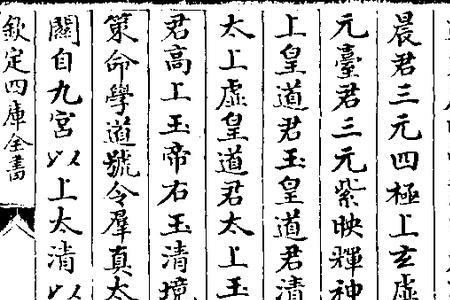 晨君三元四極上玄虛
元臺君三元紫映輝神
上皇道君玉皇道君清
太上虛皇道君太上玉
君高上玉帝右玉清境
策命學道號令羣真太
關自九宮以上太清以
欽定四庫全書